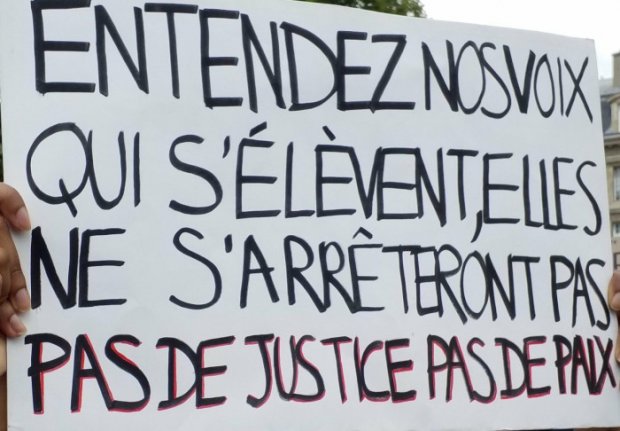 ENTENDEZ NOS VOIX
QUI S'ÉLÈVENT, ELLES
NE S'ARRÊTERONT PAS
PAS DE JUSTICE PAS DE PAIX